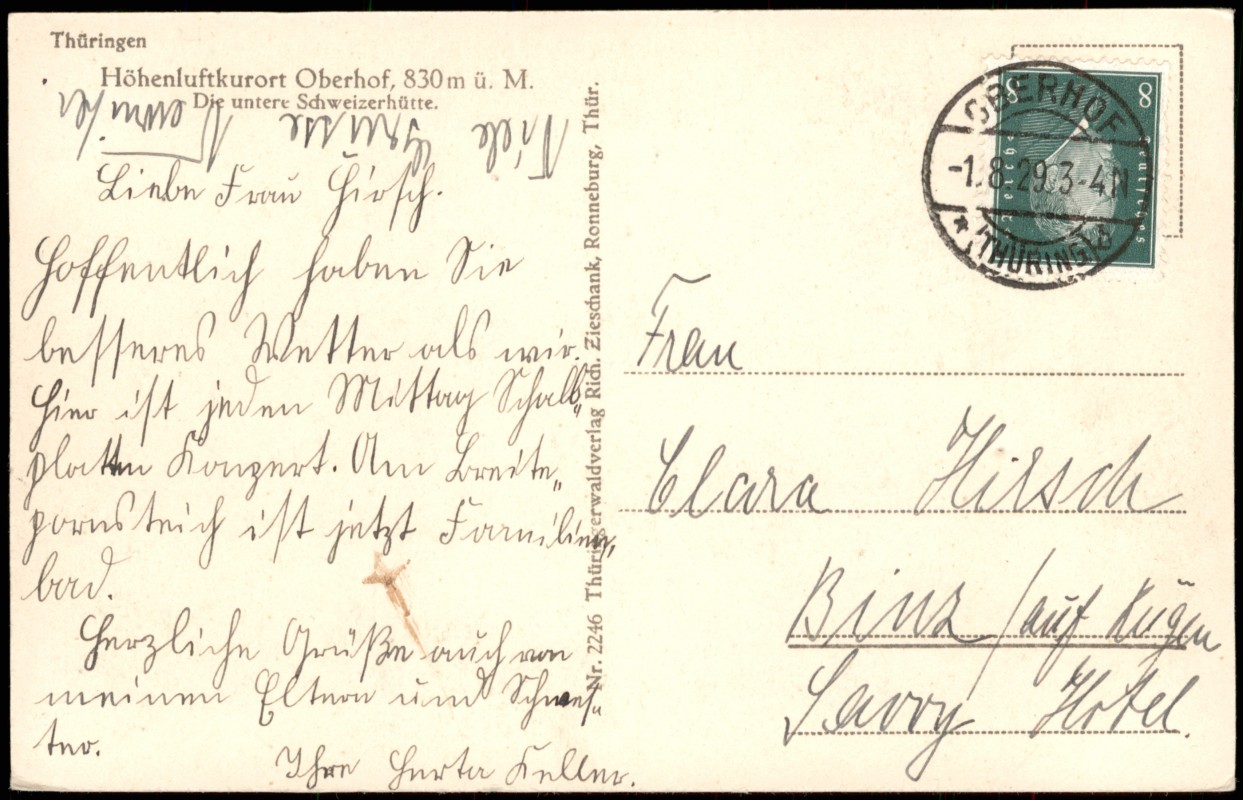 Thüringen
Höhenluftkurort Oberhof, 830 m ü. M.
Die untere Schweizerhütte.
Viele Grüsse
Liebe Frau Hirsch.
Hoffentlich haben Sie
besseres Wetter als wir.
Hier ist jeden Mittag Schall„
platten Konzert. Am Breite„
pornsteich ist jetzt Familien„
bad.
Herzliche Grüße auch von
meinen Eltern und Schwes„
ter.
Ihre Herta Keller.
Nr. 2246 Thüringerwaldverlag Rich. Zieschank, Ronneburg, Thür.
8 8
Deutsches
Reich
OBERHOF
-1.8.29.3-4N
* (THÜRING)
Frau
Clara Hirsch
Binz / auf Rügen
Savoy Hotel.